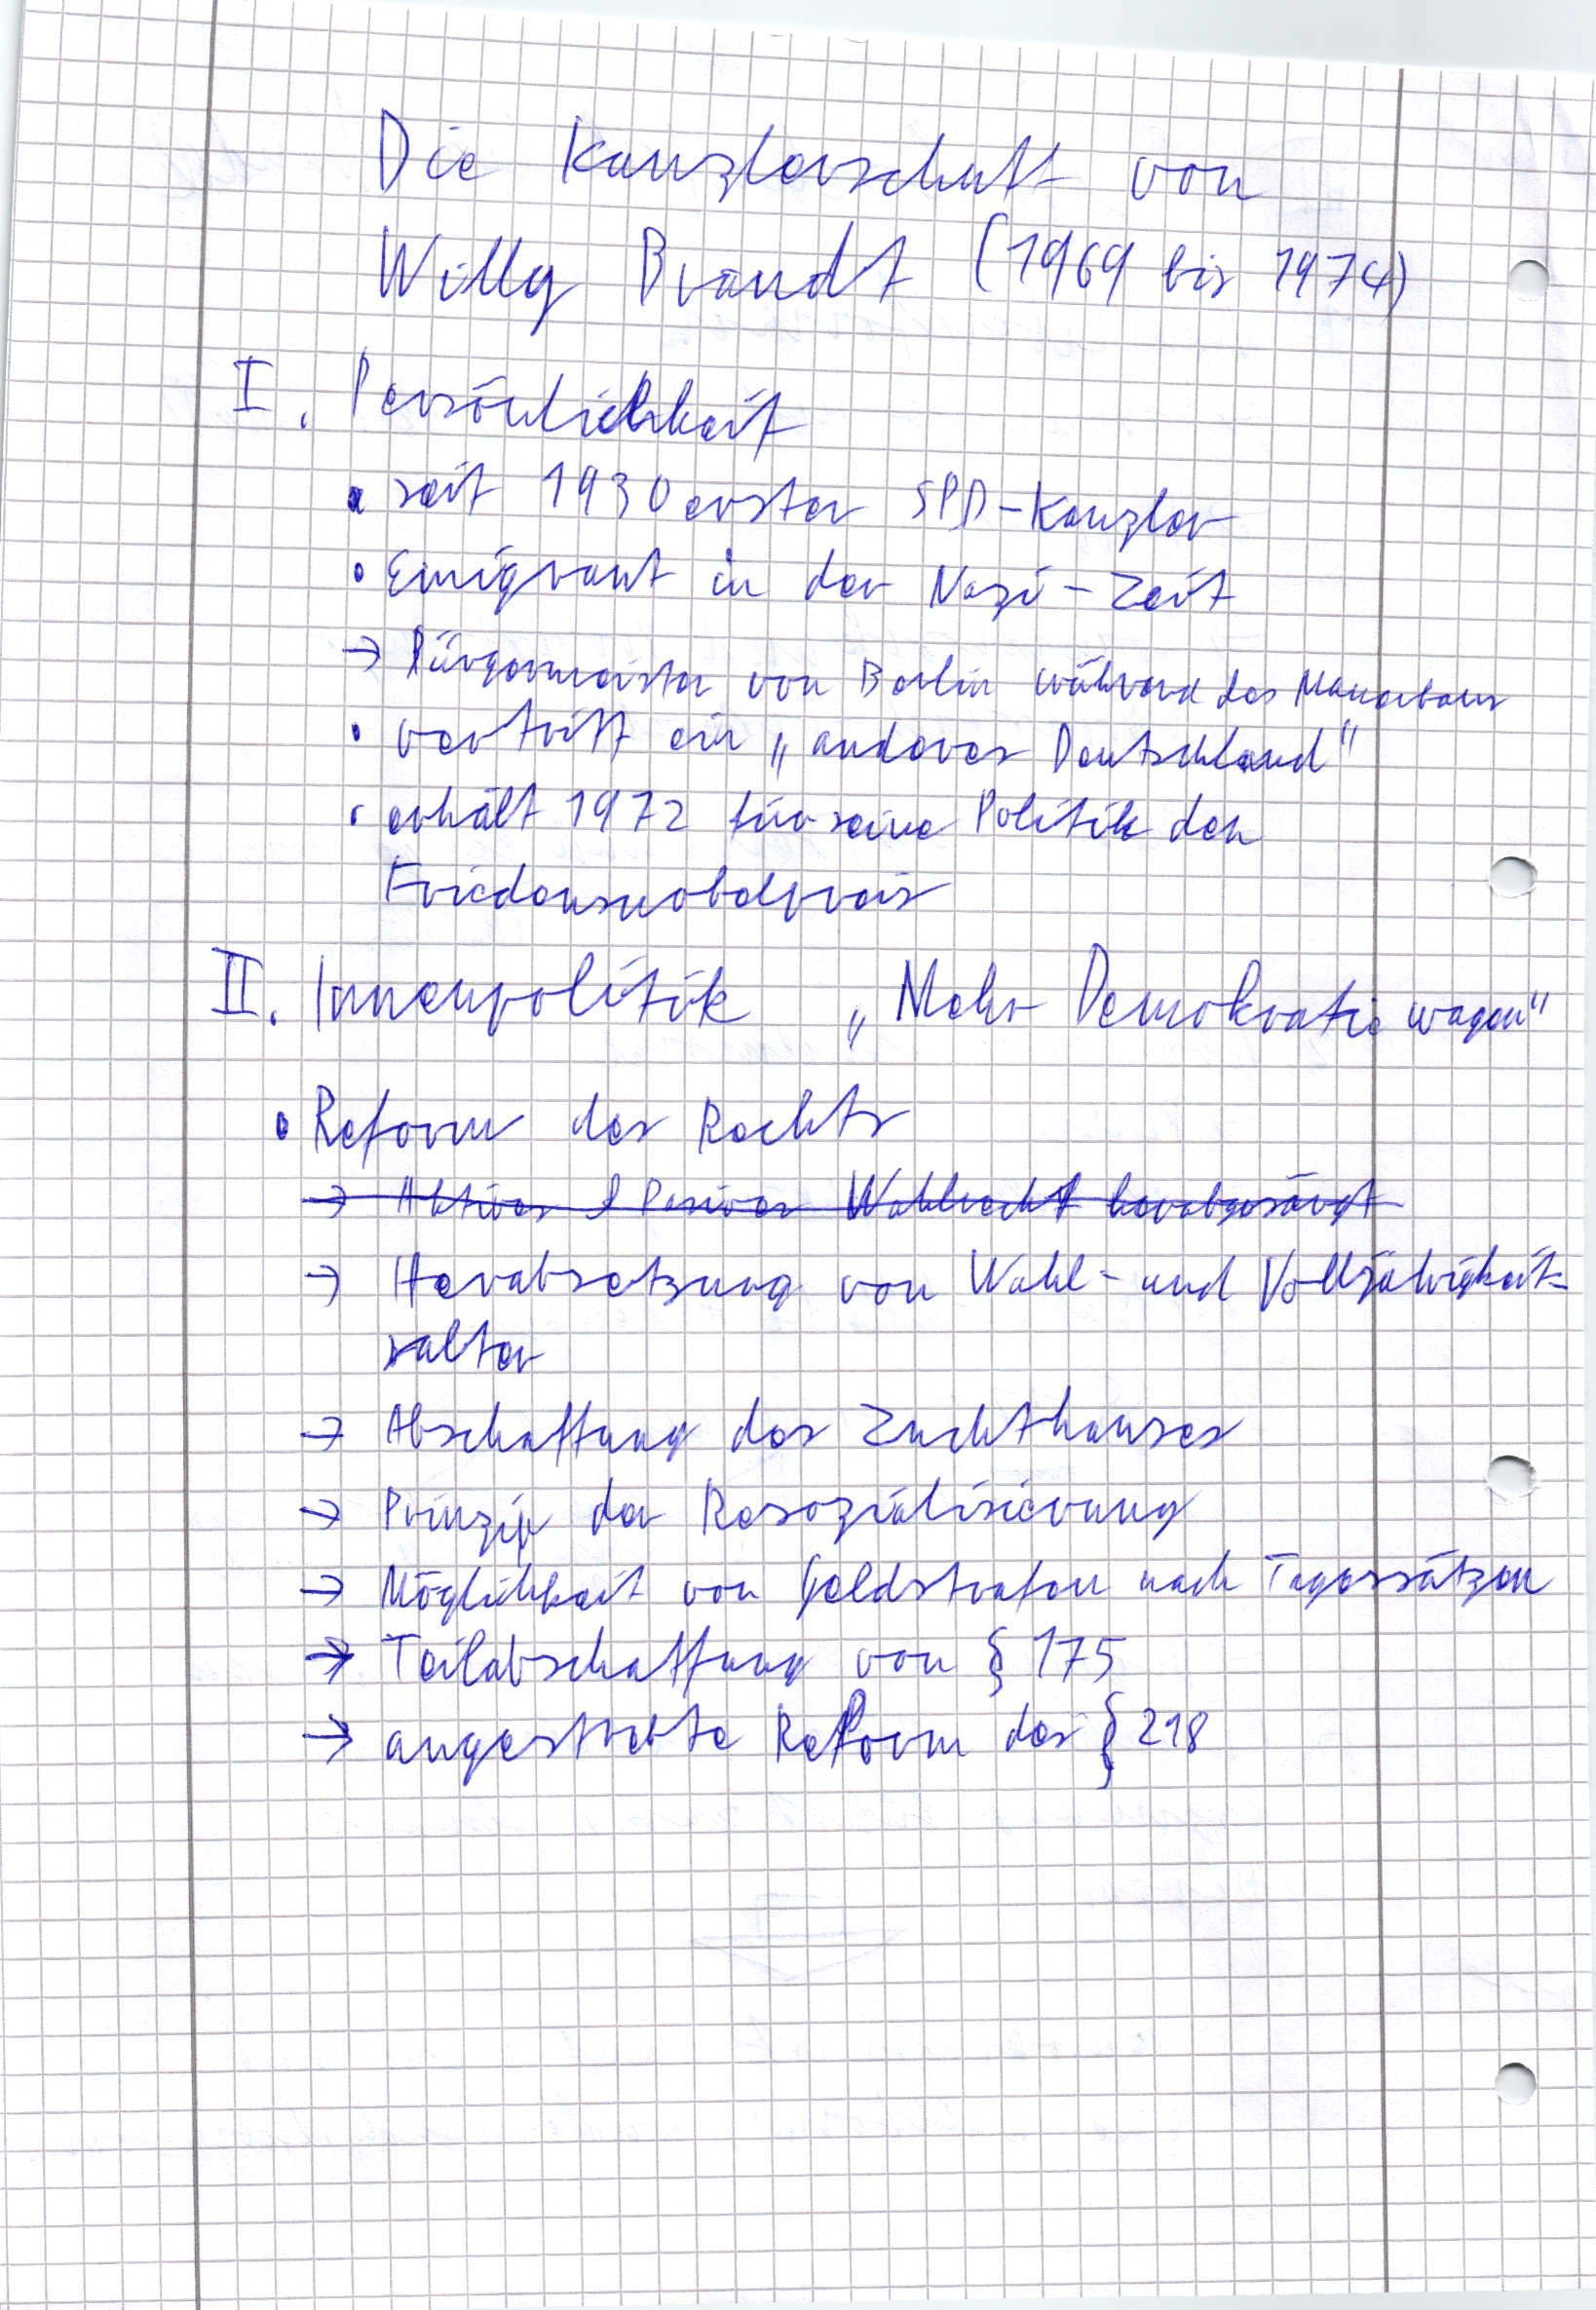 Die Kanzlerschaft von
Willy Brandt (1969 bis 1974)
I. Persönlichkeit
• seit 1930 erster SPD-Kanzler
• Emigrant in der Nazi-Zeit
→ Bürgermeister von Berlin während des Mauerbaus
• vertritt ein „anderes Deutschland"
• erhält 1972 für seine Politik den
Friedensnobelpreis
II. Innenpolitik „Mehr Demokratie wagen"
• Reform des Rechts
→ Aktives & Pasives Wahlrecht
→ Herabsetzung von Wahl- und Volljährigkeit-
salter
→ Abschaffung des Zuchthauses
→ Prinzip der Resozialisierung
→ Möglichkeit von Geldstrafen nach Tagessätzen
→ Teilabschaffung von § 175
→ angestrebte Reform des § 218